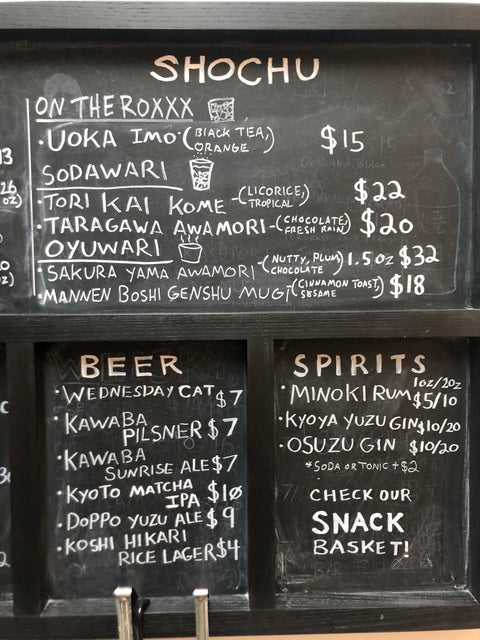 SHOCHU
ON THE ROXXX
·UOKA IMO·(BLACK TEA, ORANGE) $15
SODAWARI
·TORI KAI KOME-(LICORICE, TROPICAL) $22
·TARAGAWA AWAMORI-(CHOCOLATE, FRESH RAIN) $20
OYUWARI
·SAKURA YAMA AWAMORI-(NUTTY, PLUM, CHOCOLATE) 1.5oz $32
·MANNEN BOSHI GENSHU MUGI(CINNAMON TOAST, SESAME) $18
13
26
oz)
BEER
·WEDNESDAY CAT $7
·KAWABA
PILSNER $7
·KAWABA
SUNRISE ALE $7
·KYOTO MATCHA
IPA $10
·DOPPO YUZU ALE $9
·KOSHI HIKARI
RICE LAGER $4
SPIRITS
1oz/2oz
·MINOKI RUM $5/10
·KYOYA YUZU GIN $10/20
·OSUZU GIN $10/20
*SODA OR TONIC +$2
CHECK OUR
SNACK
BASKET!